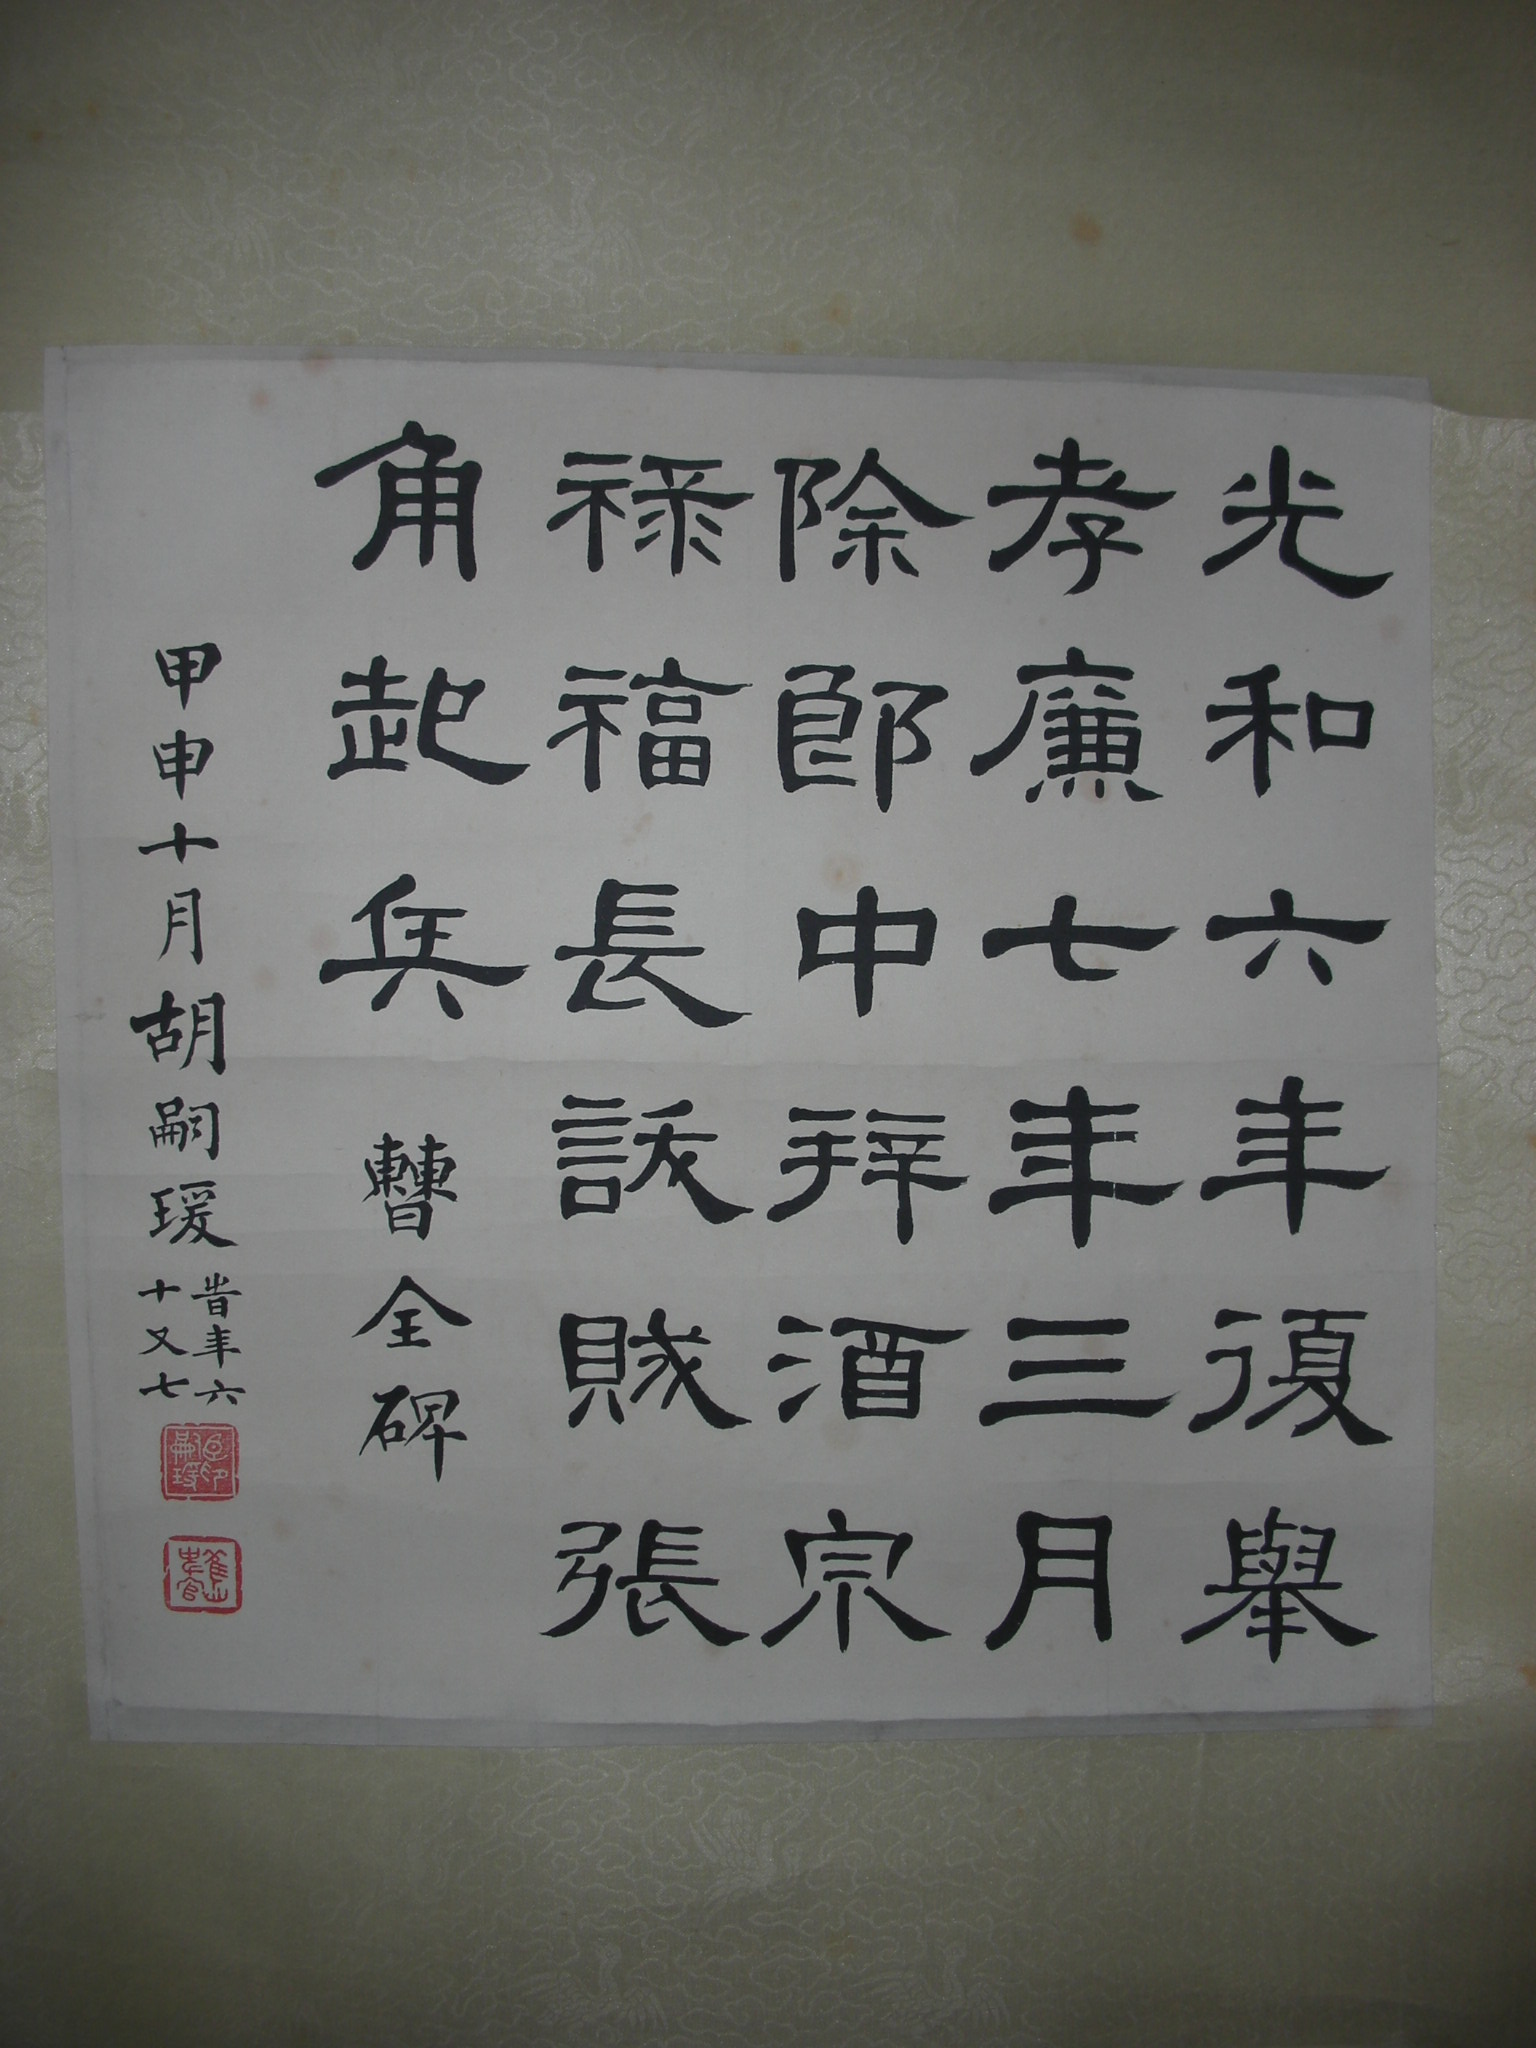 光和六年復舉
孝廉七年三月
除郎中拜酒泉
祿福長訞賊張
角起兵 曹全碑
甲申十月胡嗣瑗
時年六
十又七